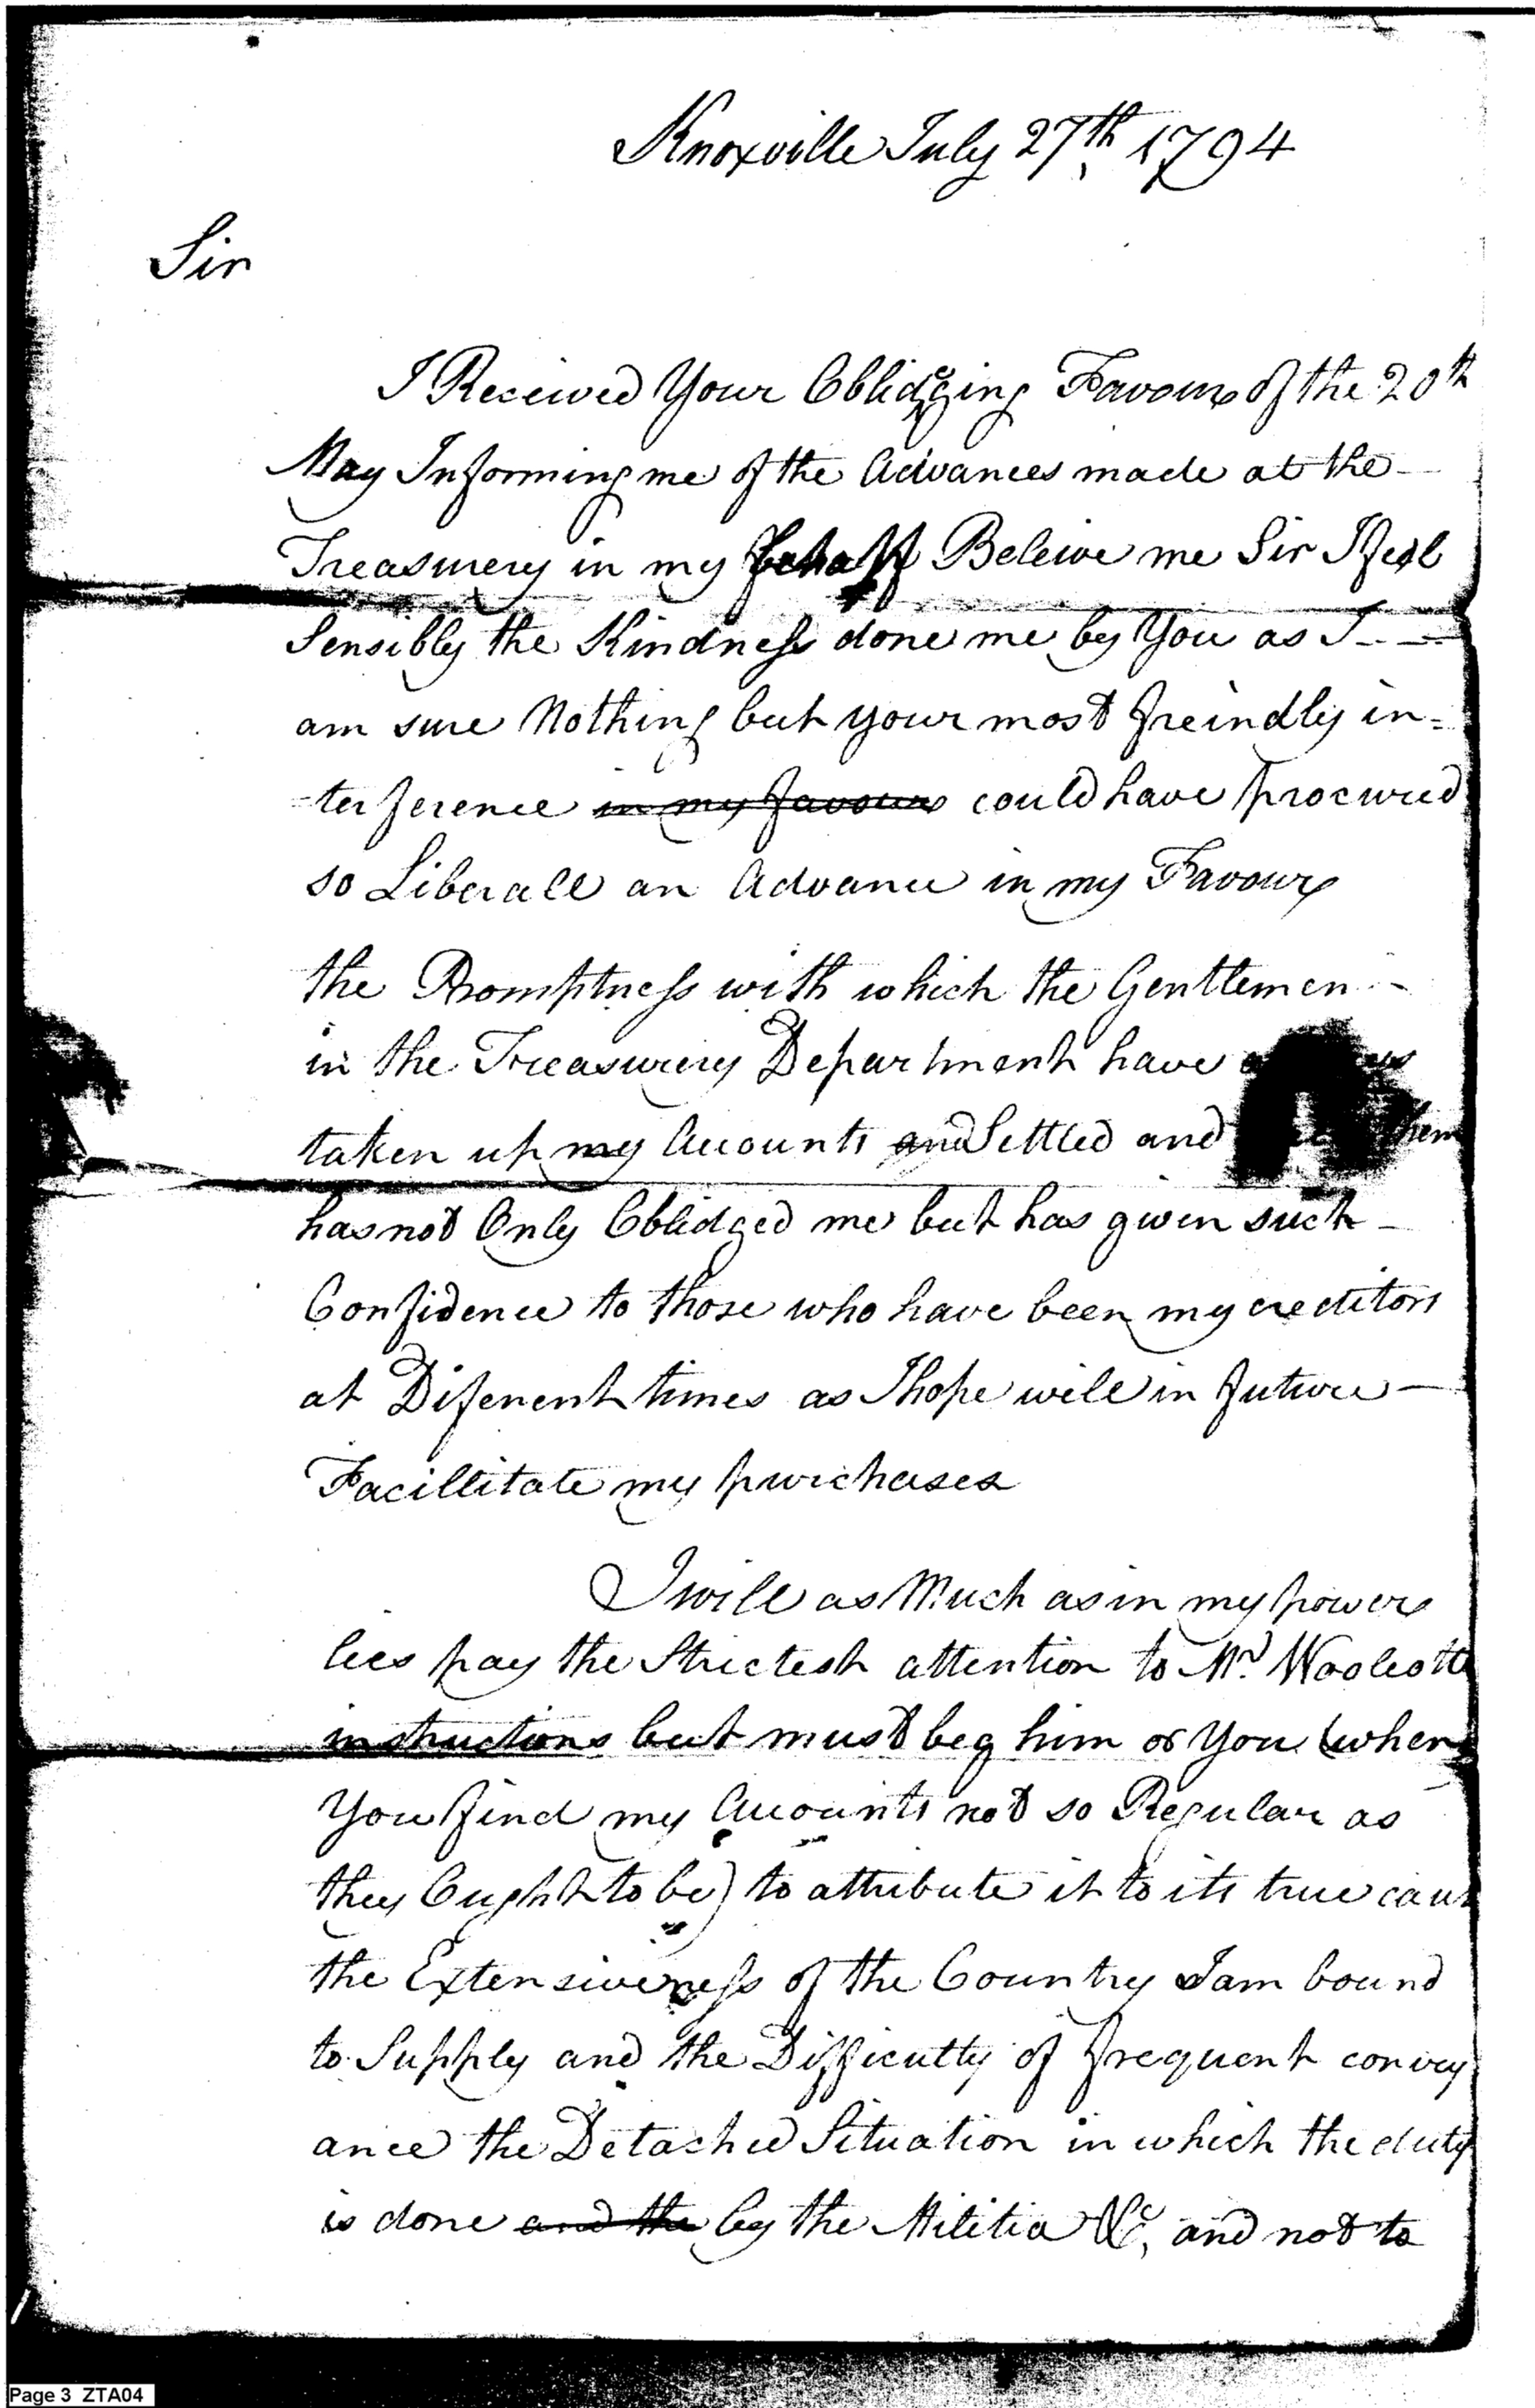 Knoxville July 27th 1794
Sir
I Received Your Oblidging Favour of the 20th
May Informing me of the Advances made at the
Treasurery in my behalf Beleive me Sir I feel
Sensibly the Kindness done me by You as I
am sure Nothing but your most freindly in=
-terference in my favour could have procured
so Liberall an Advance in my Favour
the Promptness with which the Gentlemen
in the Treasurery Department have
taken up my Accounts and Settled and them
has not Only Oblidged me but has given such
Confidence to those who have been my creditors
at Diferent times as I hope will in future
Facillitate my purchases
I will as Much as in my power
lies pay the Strictest attention to Mr. Woolcotts
instructions but must beg him or You (when
You find my Accounts not so Regular as
they Ought to be) to attribute it to its true caus
the Extensiveness of the Country I am bound
to Supply and the Difficulty of frequent convey
ance the Detached Situation in which the duty
is done and the by the Militia &c, and not to
Page 3 ZTA04